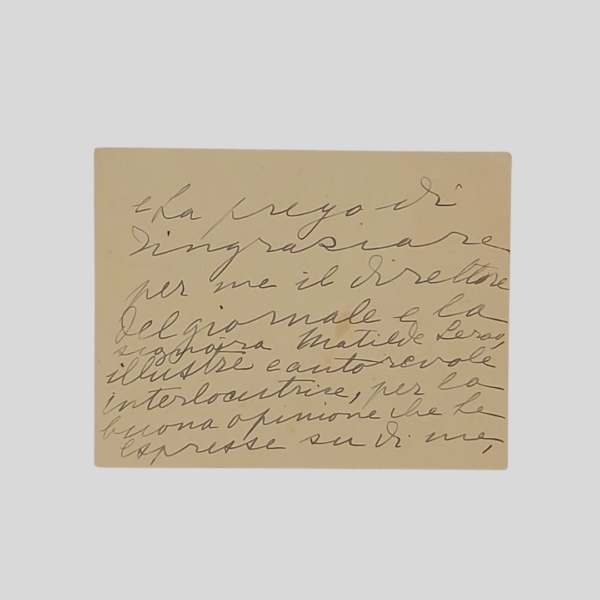 e La prego di
ringraziare
per me il direttore
del giornale e la
signora Matilde Serao,
illustre e autorevole
interlocutrice, per la
buona opinione che
espresse su di me,